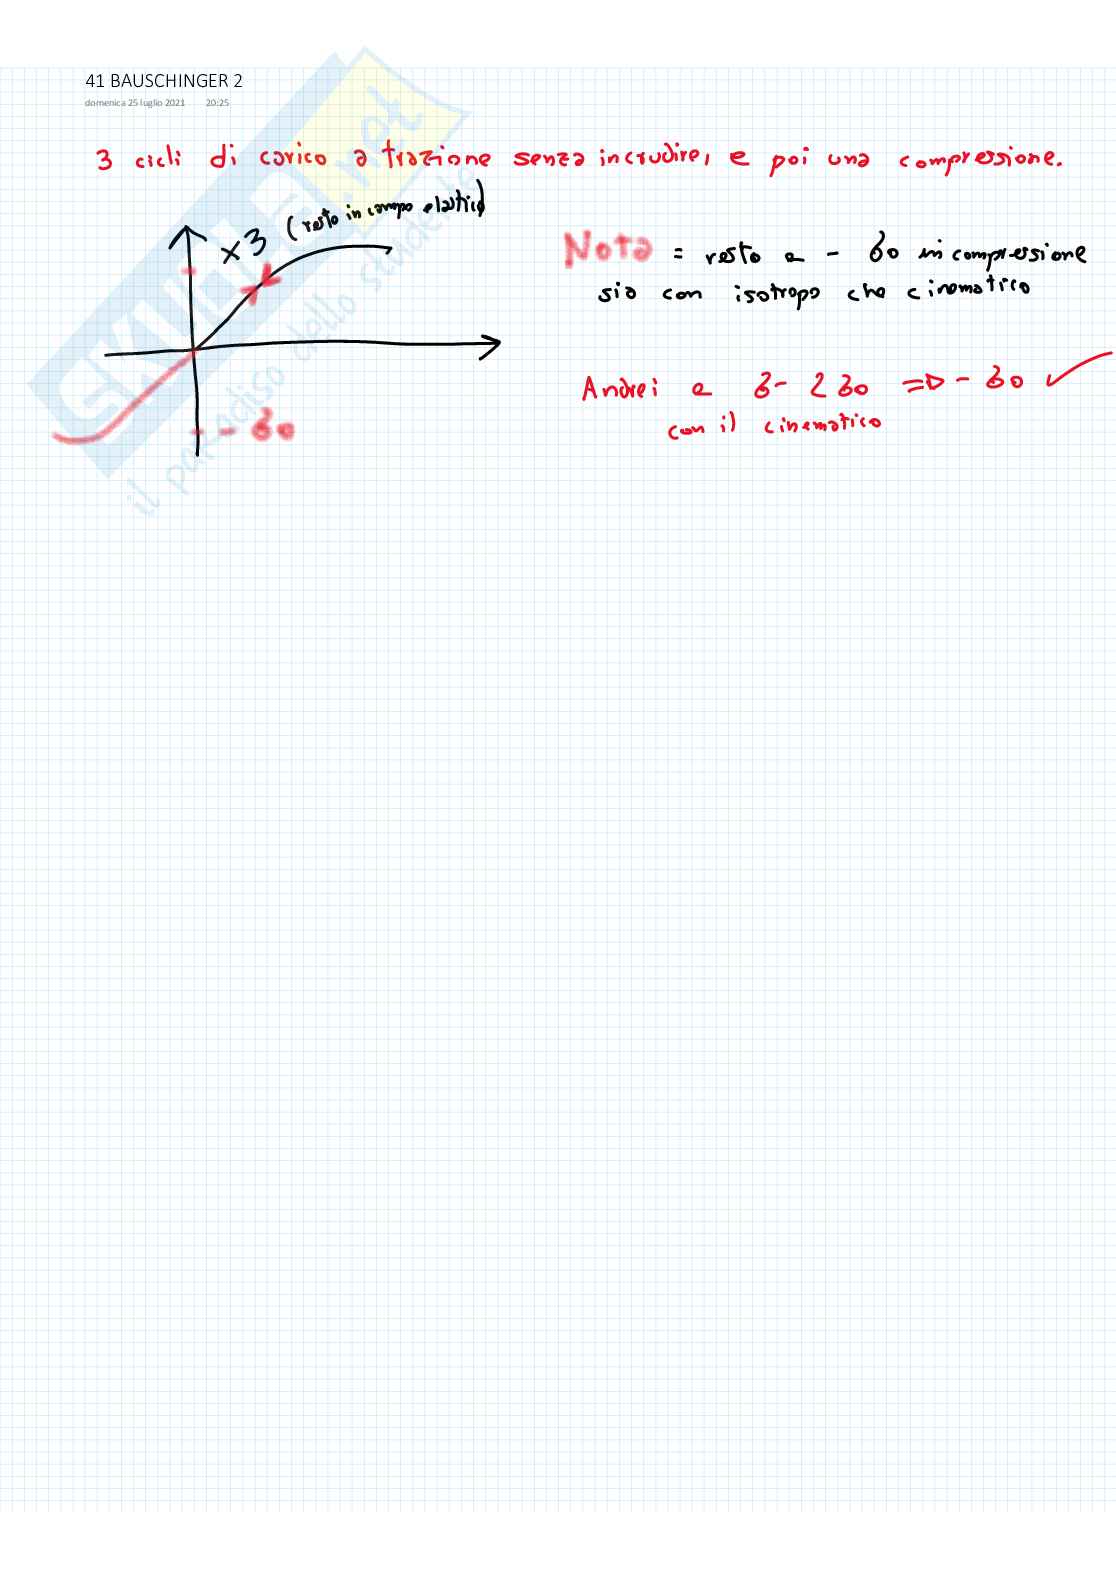 41 BAUSCHINGER 2
domenica 25 luglio 2021 20:25
3 cicli di carico a trazione senza incrudire, e poi una compressione.
x3 (resto in campo elastico)
Nota = resto a - σ0 in compressione
sia con isotropo che cinematico
Andrei a σ - 2σ0 => - σ0 ✓
con il cinematico
- σ0
SKUOLA.net
il paradiso dello studente